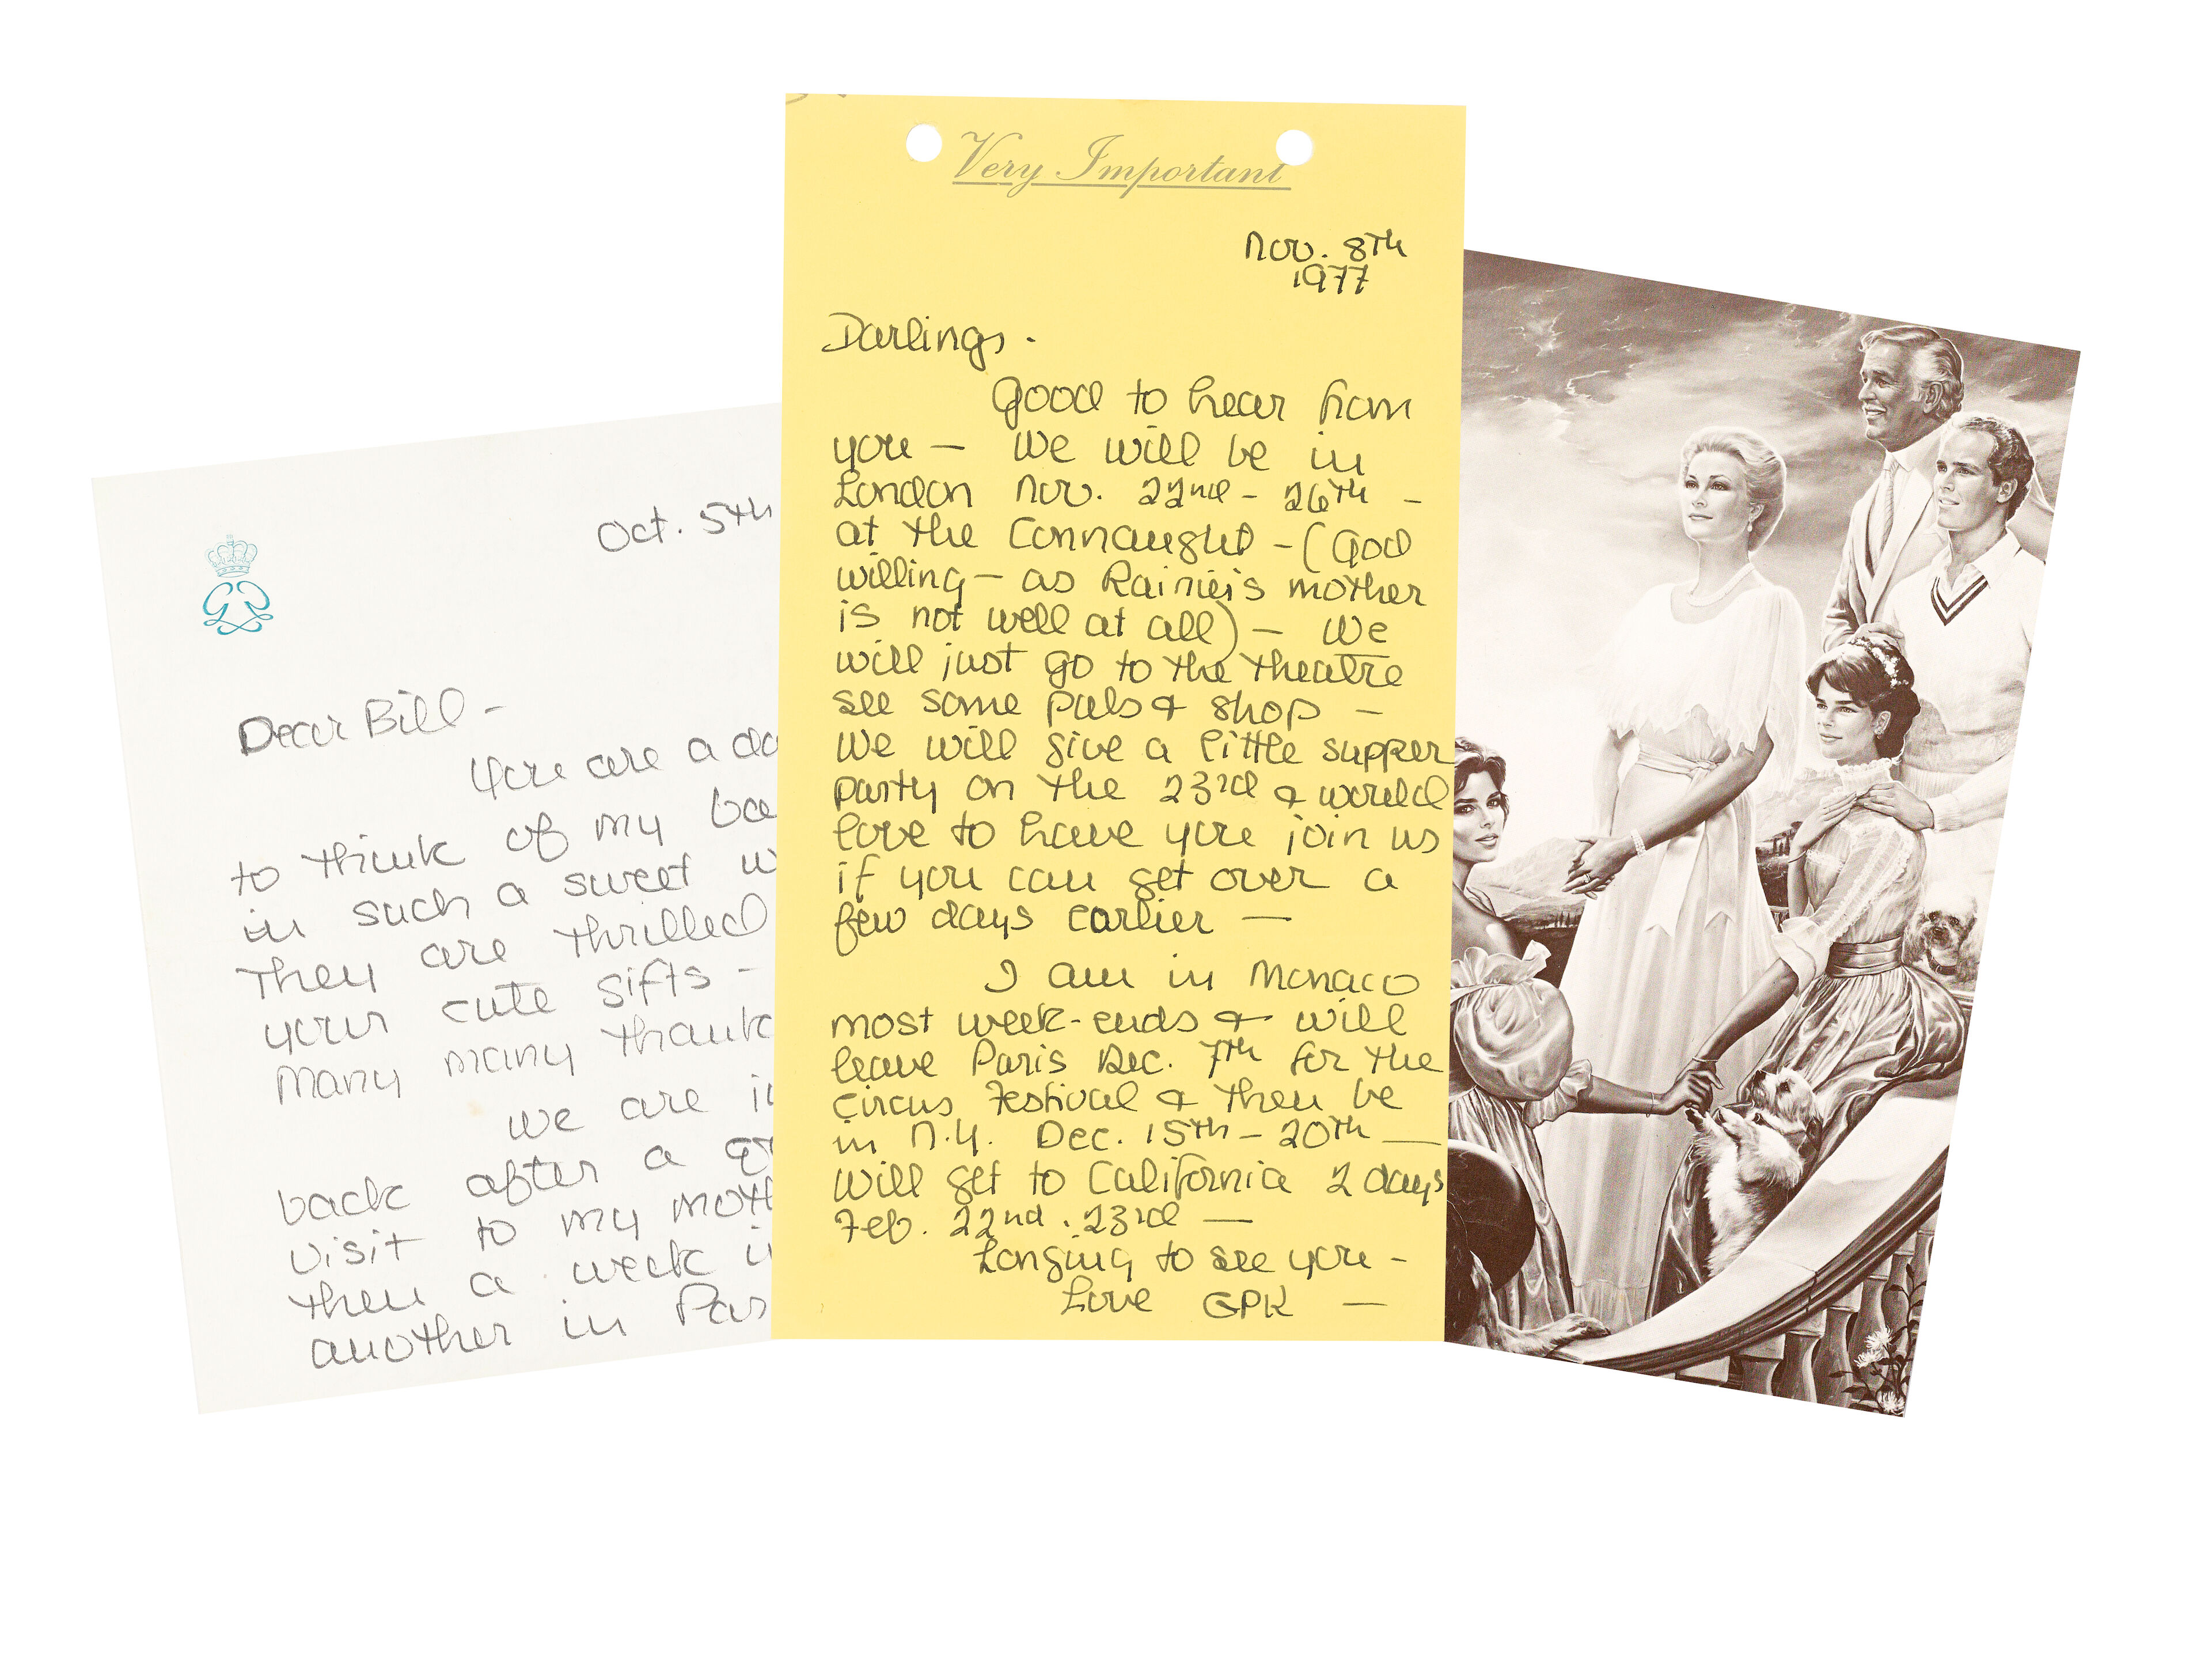 Oct. 5th
Dear Bill -
You are a
to think of my
in such a sweet
They are thrilled
your cute gifts -
Many many thank
we are
back after a
visit to my
then a week
another in
Very Important
Nov. 8th
1977
Darlings.
Good to hear from
you — We will be in
London Nov. 22nd - 26th -
at the Connaught - (God
willing - as Rainier's mother
is not well at all) - We
will just go to the theatre
see some pals & shop -
We will give a little supper
party on the 23rd & would
love to have you join us
if you can get over a
few days earlier —
I am in Monaco
most week-ends & will
leave Paris Dec. 7th for the
Circus Festival & then be
in N.Y. Dec. 15th - 20th —
will get to California 2 days
Feb. 22nd. 23rd —
Longing to see you -
Love GPK —